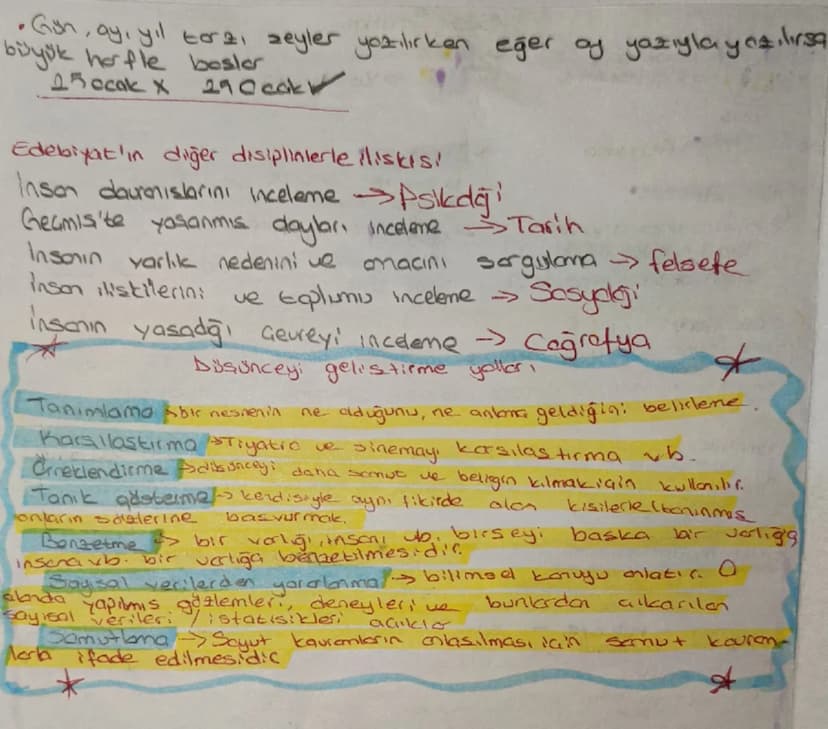 • Gün, ay, yıl tarzı şeyler yazılırken eğer ay yazıyla yazılırsa
büyük harfle başlar
29ocak x 29Ocak ✓
Edebiyat'ın diğer disiplinlerle ilişkisi
İnsan davranışlarını inceleme → Psikoloji
Geçmiş'te yaşanmış olayları inceleme → Tarih
İnsanın varlık nedenini ve amacını sorgulama → felsefe
İnsan ilişkilerini ve toplumu inceleme → Sosyoloji
İnsanın yaşadığı çevreyi inceleme → Coğrafya
Düşünceyi geliştirme yolları
Tanımlama → bir nesnenin ne olduğunu, ne anlama geldiğini belirleme.
Karşılaştırma → Tiyatro ve sinemayı karşılaştırma vb.
Örneklendirme → düşünceyi daha somut ve belirgin kılmak için kullanılır.
Tanık gösterme → kendisiyle aynı fikirde olan kişilerle (tanınmış
onların sözlerine başvurmak.
Benzetme → bir varlığı, insanı vb. bir şeyi başka bir varlığa
insana vb. bir varlığa benzetilmesidir.
Sayısal verilerden yararlanma → bilimsel konuyu anlatır. O
alanda yapılmış gözlemleri, deneyleri ve bunlardan çıkarılan
sayısal verileri / istatisikleri açıklar
Somutlama → Soyut kavramların anlaşılması için somut kavram-
larla ifade edilmesidir